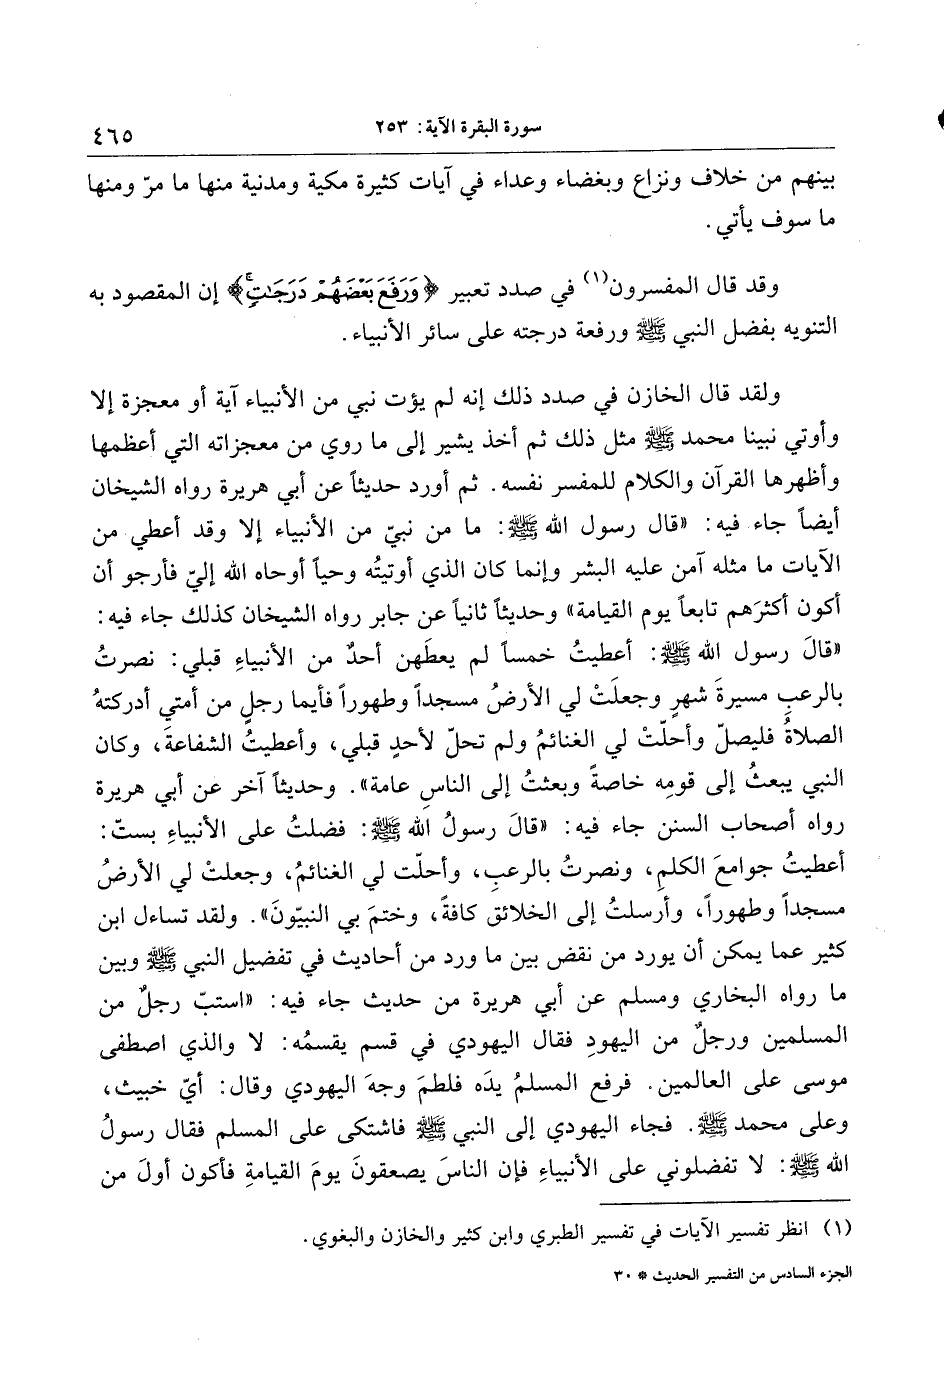 سورة البقرة الآية: ٢٥٣
٤٦٥
بينهم من خلاف ونزاع وبغضاء وعداء في آيات كثيرة مكية ومدنية منها ما مرّ ومنها
ما سوف يأتي.
وقد قال المفسرون(١) في صدد تعبير ﴿وَرَفَعَ بَعْضَهُمْ دَرَجَٰتٍۚ﴾ إن المقصود به
التنويه بفضل النبي ﷺ ورفعة درجته على سائر الأنبياء.
ولقد قال الخازن في صدد ذلك إنه لم يؤت نبي من الأنبياء آية أو معجزة إلا
وأوتي نبينا محمد ﷺ مثل ذلك ثم أخذ يشير إلى ما روي من معجزاته التي أعظمها
وأظهرها القرآن والكلام للمفسر نفسه. ثم أورد حديثاً عن أبي هريرة رواه الشيخان
أيضاً جاء فيه: «قال رسول الله ﷺ: ما من نبيّ من الأنبياء إلا وقد أعطي من
الآيات ما مثله آمن عليه البشر وإنما كان الذي أوتيتُه وحياً أوحاه الله إليّ فأرجو أن
أكون أكثرَهم تابعاً يوم القيامة» وحديثاً ثانياً عن جابر رواه الشيخان كذلك جاء فيه:
«قالَ رسول الله ﷺ: أعطيتُ خمساً لم يعطَهن أحدٌ من الأنبياءِ قبلي: نصرتُ
بالرعبِ مسيرةَ شهرٍ وجعلَتْ لي الأرضُ مسجداً وطهوراً فأيما رجلٍ من أمتي أدركتهُ
الصلاةُ فليصلّ وأحلّتْ لي الغنائمُ ولم تحلّ لأحدٍ قبلي، وأعطيتُ الشفاعةَ، وكان
النبي يبعثُ إلى قومِه خاصةً وبعثتُ إلى الناسِ عامة». وحديثاً آخر عن أبي هريرة
رواه أصحاب السنن جاء فيه: «قالَ رسولُ الله ﷺ: فضلتُ على الأنبياءِ بستّ:
أعطيتُ جوامعَ الكلمِ، ونصرتُ بالرعبِ، وأحلّت لي الغنائمُ، وجعلتْ لي الأرضُ
مسجداً وطهوراً، وأرسلتُ إلى الخلائق كافةً، وختمَ بي النبيّونَ». ولقد تساءل ابن
كثير عما يمكن أن يورد من نقض بين ما ورد من أحاديث في تفضيل النبي ﷺ وبين
ما رواه البخاري ومسلم عن أبي هريرة من حديث جاء فيه: «استبّ رجلٌ من
المسلمين ورجلٌ من اليهودِ فقال اليهودي في قسم يقسمُه: لا والذي اصطفى
موسى على العالمين. فرفع المسلمُ يدَه فلطمَ وجهَ اليهودي وقال: أيّ خبيث،
وعلى محمد ﷺ. فجاء اليهودي إلى النبي ﷺ فاشتكى على المسلم فقال رسولُ
الله ﷺ: لا تفضلوني على الأنبياءِ فإن الناسَ يصعقونَ يومَ القيامةِ فأكون أولَ من
(١) انظر تفسير الآيات في تفسير الطبري وابن كثير والخازن والبغوي.
الجزء السادس من التفسير الحديث * ٣٠